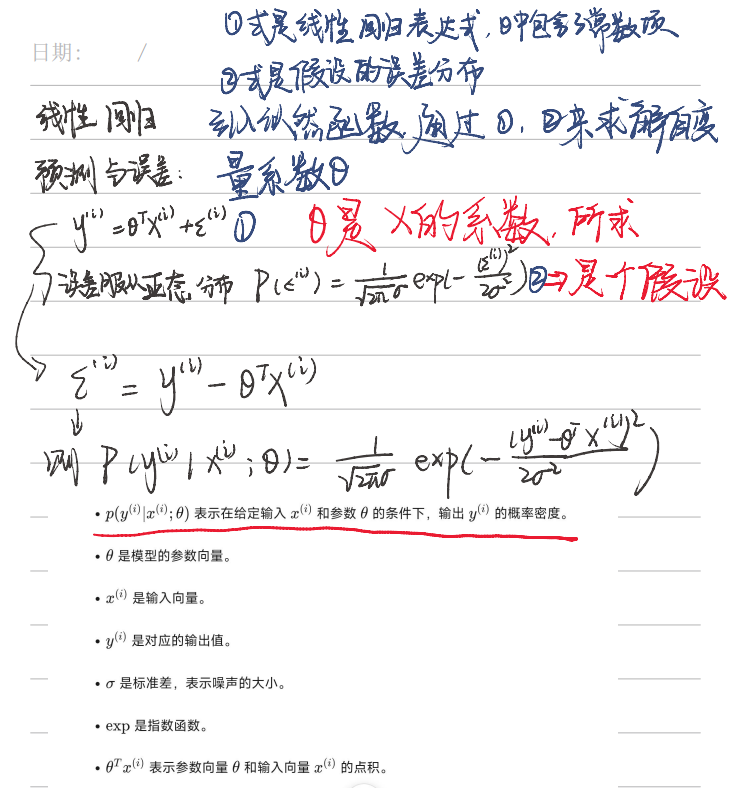 ①式是线性回归表达式，θ中包含了常数项
日期： /
②式是假设的误差分布
线性回归 引入似然函数，通过①，②来求解自变
预测与误差： 量系数θ
y⁽ⁱ⁾=θᵀx⁽ⁱ⁾+ε⁽ⁱ⁾ ① θ是X的系数，所求
误差服从正态分布 P(ε⁽ⁱ⁾) = 1/√2πσ exp(-(ε⁽ⁱ⁾)²/2σ²) ②⇒是个假设
ε⁽ⁱ⁾ = y⁽ⁱ⁾ - θᵀX⁽ⁱ⁾
则 P(y⁽ⁱ⁾|x⁽ⁱ⁾;θ) = 1/√2πσ exp(-(y⁽ⁱ⁾-θᵀx⁽ⁱ⁾)²/2σ²)
• p(y⁽ⁱ⁾|x⁽ⁱ⁾;θ) 表示在给定输入 x⁽ⁱ⁾ 和参数 θ 的条件下，输出 y⁽ⁱ⁾ 的概率密度。
• θ 是模型的参数向量。
• x⁽ⁱ⁾ 是输入向量。
• y⁽ⁱ⁾ 是对应的输出值。
• σ 是标准差，表示噪声的大小。
• exp 是指数函数。
• θᵀx⁽ⁱ⁾ 表示参数向量 θ 和输入向量 x⁽ⁱ⁾ 的点积。